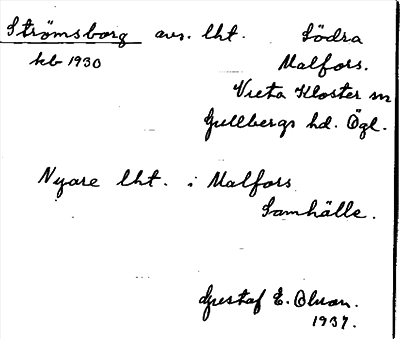 Strömsborg avs. lht. Södra
kb 1930 Malfors.
Vreta Kloster sn
Gullbergs hd. Ögl.
Nyare lht. i Malfors
Samhälle.
Gustaf E. Olsson.
1937.